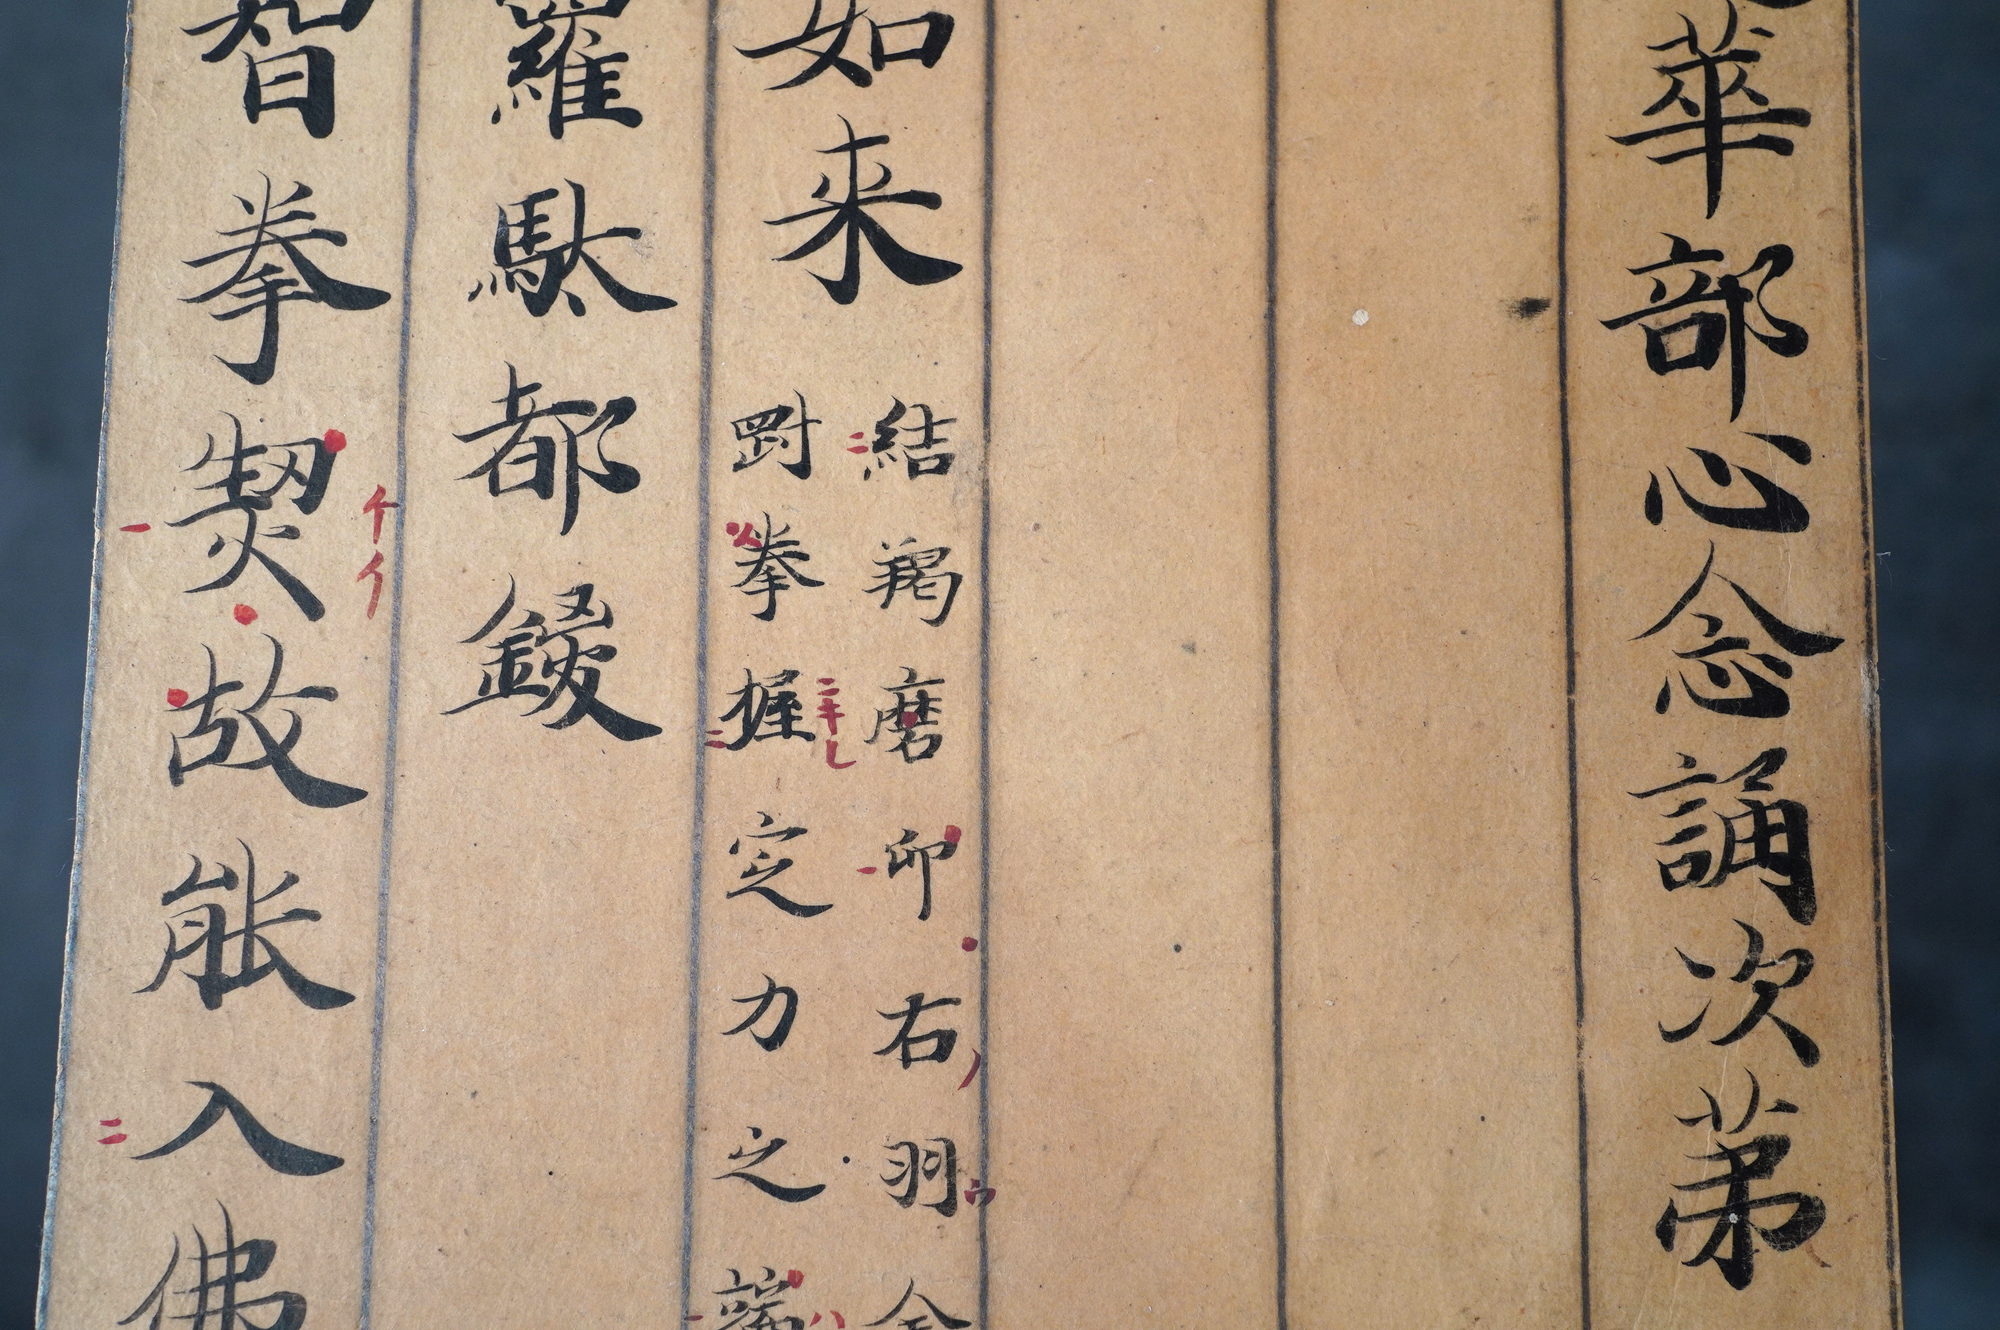 華部心念誦次第
如来
結羯磨印右羽金
剛拳握定力之端
羅駄都鑁
智拳契故能入佛